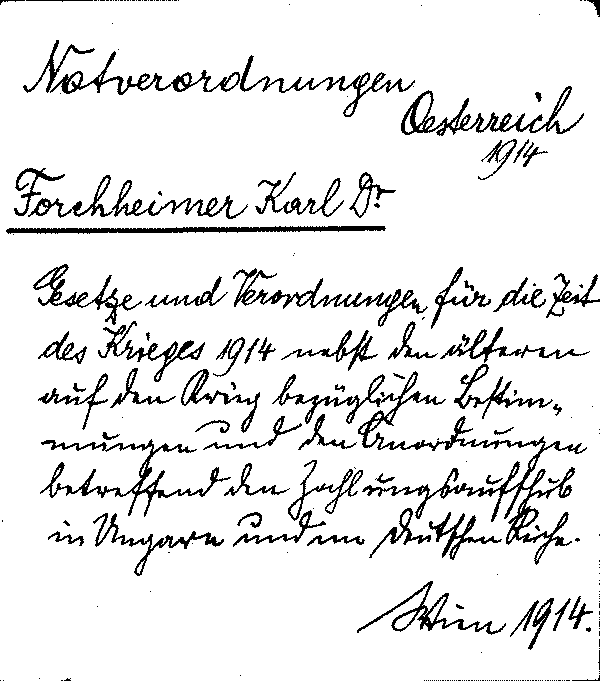 Notverordnungen
Oesterreich
1914
Forchheimer Karl Dr
Gesetze und Verordnungen für die Zeit
des Krieges 1914 nebst den älteren
auf den Krieg bezüglichen Bestim-
mungen und den Anordnungen
betreffend den Zahlungsaufschub
in Ungarn und im Deutschen Reiche.
Wien 1914.